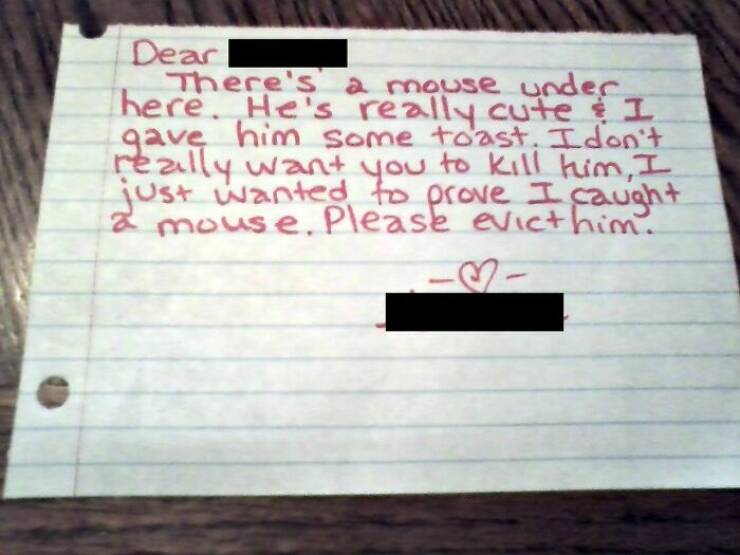 Dear
There's a mouse under
here. He's really cute & I
gave him some toast. I don't
really want you to kill him, I
just wanted to prove I caught
a mouse. Please evict him.
-♡-